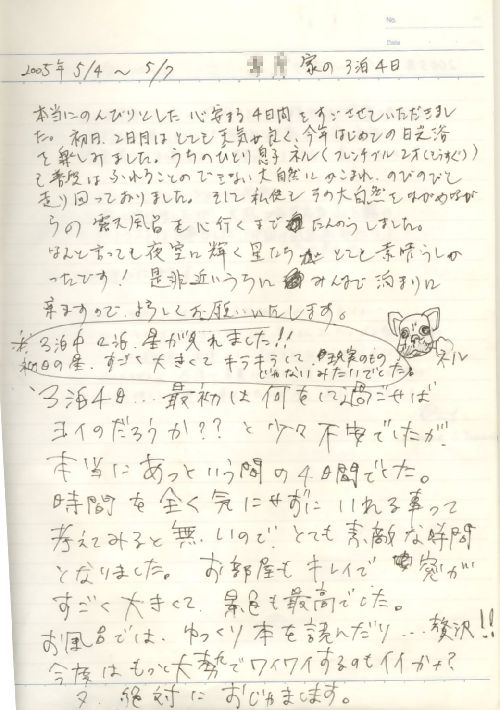 No.
Date
2005年 5/4 ～ 5/7 家の3泊4日
本当にのんびりとした 心安まる4日間をすごさせていただきまし
た。初日、2日目はとても天気が良く、今年はじめての日光浴
を楽しみました。うちのひとり息子 ネル(フレンチブル 2才(もうすぐ))
も普段はふれることのできない大自然にかこまれ、のびのびと
走り回っておりました。そして私使もその大自然をながめながら
の露天風呂を心行くまでたんのうしました。
なんと言っても夜空に輝く星たちがとても素晴らしか
ったです! 是非近いうちにみんなで泊まりに
来ますので、よろしくお願いいたします。
※3泊中2泊、星が見れました!!
初日の星、すごく大きくてキラキラして現実のもの
じゃないみたいでした。
ネル
3泊4日…最初は何をして過ごせば
ヨイのだろうか?? と少々不安でしたが
本当にあっという間の4日間でした。
時間を全く気にせずにいれる事って
考えてみると無いのでとても素敵な時間
となりました。お部屋もキレイで窓が
すごく大きくて、景色も最高でした。
お風呂では、ゆっくり本を読んだり…贅沢!!
今度はもっと大勢でワイワイするのもイイかナ?
又、絶対におじゃまします。